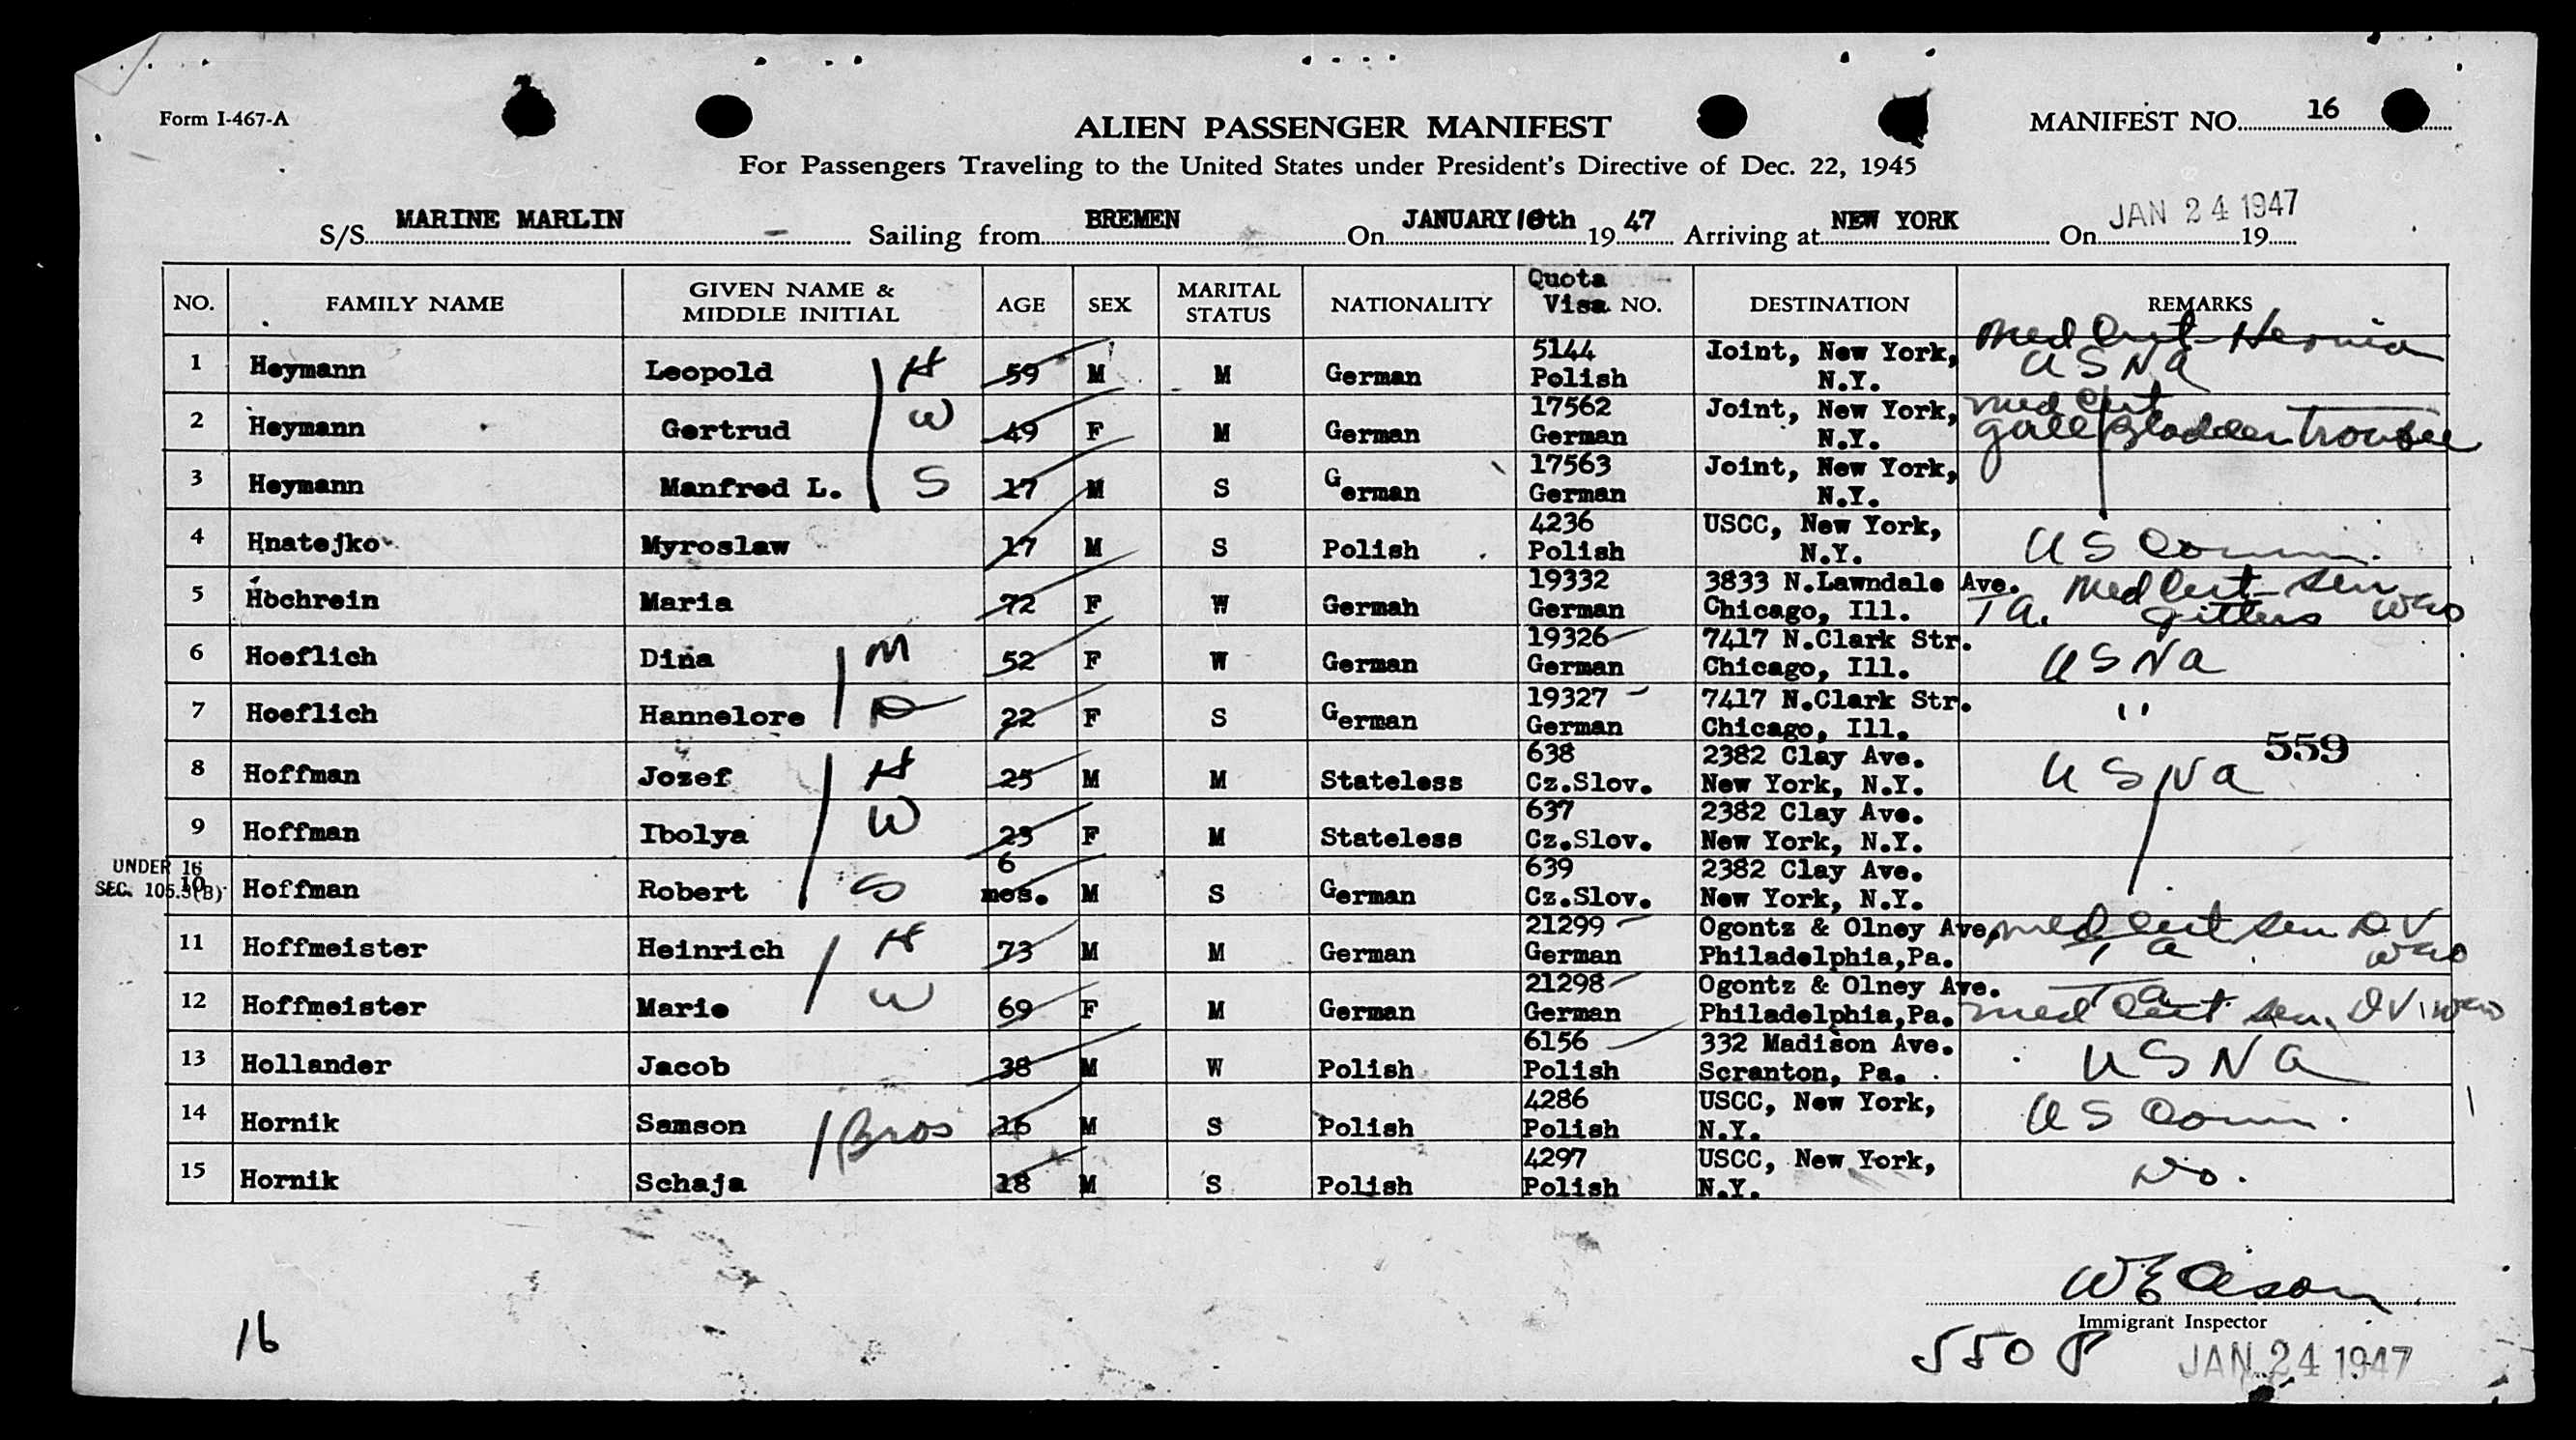 Form I-467-A
ALIEN PASSENGER MANIFEST
MANIFEST NO. 16
For Passengers Traveling to the United States under President's Directive of Dec. 22, 1945
S/S MARINE MARLIN Sailing from BREMEN On JANUARY 10th 19 47 Arriving at NEW YORK On JAN 24 1947 19
NO. FAMILY NAME GIVEN NAME & MIDDLE INITIAL AGE SEX MARITAL STATUS NATIONALITY Quota Visa NO. DESTINATION REMARKS
1 Heymann Leopold H 59 M M German 5144 Polish Joint, New York, N.Y. Med Cert Hernia USNA
2 Heymann Gertrud W 49 F M German 17562 German Joint, New York, N.Y. med Cert gall Bladder trouble
3 Heymann Manfred L. S 17 M S German 17563 German Joint, New York, N.Y.
4 Hnatejko Myroslaw 17 M S Polish 4236 Polish USCC, New York, N.Y. US Comm.
5 Hochrein Maria 72 F W Germah 19332 German 3833 N.Lawndale Ave. Chicago, Ill. TA. Med Cert sen
6 Hoeflich Dina M 52 F W German 19326 German 7417 N.Clark Str. Chicago, Ill. USNA
7 Hoeflich Hannelore D 22 F S German 19327 German 7417 N.Clark Str. Chicago, Ill. "
559
8 Hoffman Jozef H 25 M M Stateless 638 Cz.Slov. 2382 Clay Ave. New York, N.Y. USNA
9 Hoffman Ibolya W 23 F M Stateless 637 Cz.Slov. 2382 Clay Ave. New York, N.Y.
UNDER 16
SEC. 105.3(B)
10 Hoffman Robert S 6 mos. M S German 639 Cz.Slov. 2382 Clay Ave. New York, N.Y.
11 Hoffmeister Heinrich H 73 M M German 21299 German Ogontz & Olney Ave. Philadelphia,Pa. med cert sen DV TA
12 Hoffmeister Marie W 69 F M German 21298 German Ogontz & Olney Ave. Philadelphia,Pa. TA med Cert sen. DV
13 Hollander Jacob 38 M W Polish 6156 Polish 332 Madison Ave. Scranton, Pa. USNA
14 Hornik Samson Bros 16 M S Polish 4286 Polish USCC, New York, N.Y. US Comm.
15 Hornik Schaja 18 M S Polish 4297 Polish USCC, New York, N.Y. Do.
Immigrant Inspector
16
550 P JAN 24 1947